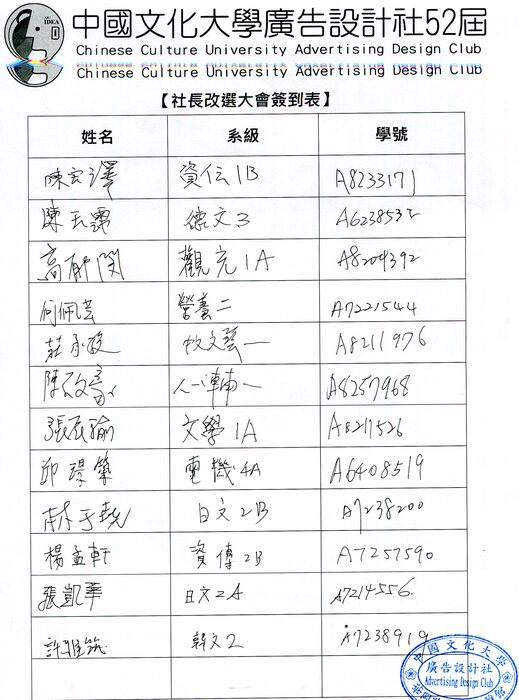 IDEA
中國文化大學廣告設計社52屆
Chinese Culture University Advertising Design Club
Chinese Culture University Advertising Design Club
【社長改選大會簽到表】
姓名 系級 學號
陳宏澤 資傳1B A8233171
陳玉霈 德文3 A6238532
高郁閔 觀光1A A8204392
何佩芸 營養二 A7221544
莊 中文藝一 A8211976
陳 心輔一 A8257968
張辰瑜 文學1A A8217526
邱璟築 電機4A A6408519
林于堯 日文2B A7238200
楊孟軒 資傳2B A7257590
張凱華 日文2A A7214556
許雅筑 韓文2 A7238919
中國文化大學
廣告設計社
Advertising Design Club